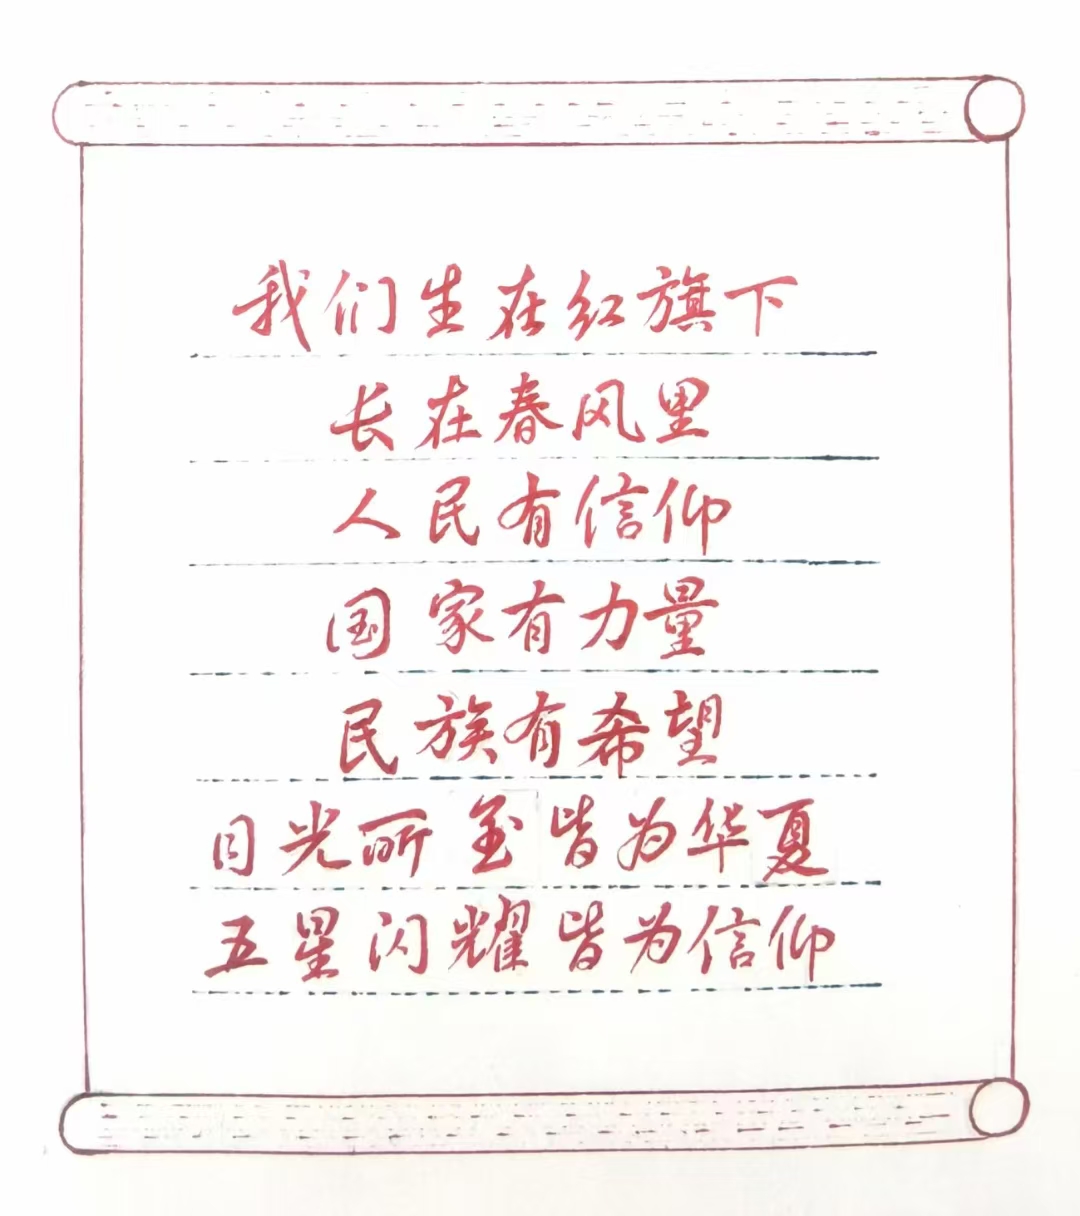 我们生在红旗下
长在春风里
人民有信仰
国家有力量
民族有希望
目光所至皆为华夏
五星闪耀皆为信仰